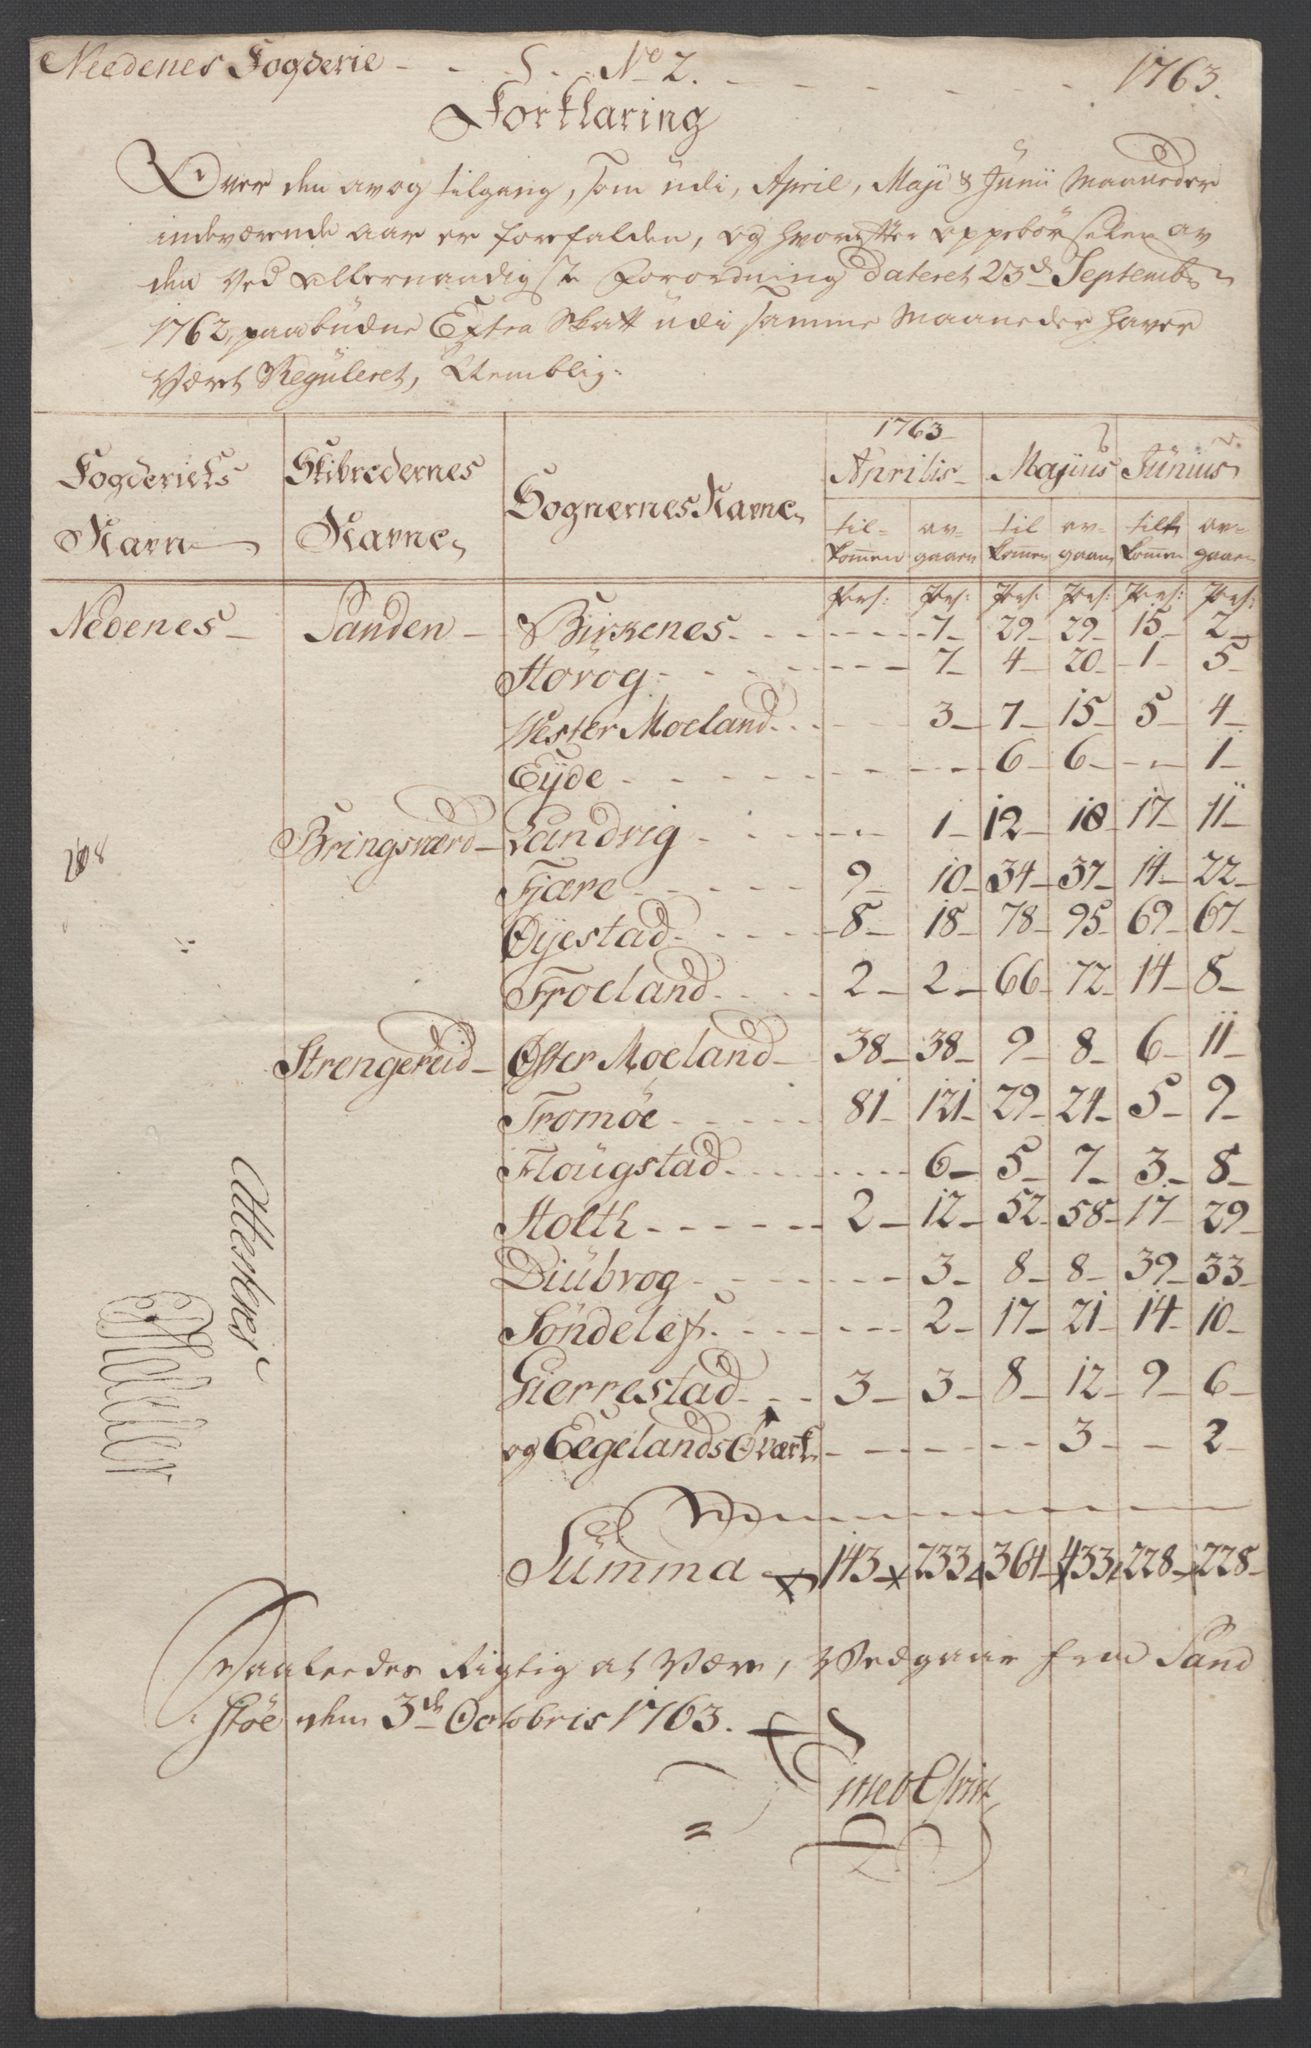 Needenes Fogderie - - No 2. - - 1763.
Forklaring
Over den avog tilgang, som udi, April, Maji & Junii Maaneder
indeværende aar er forefalden, og hvorefter oppebörselen av
den ved allernaadigste Forordning dateret 23d Septembr
1762, paabudne Extra Skatt udi samme Maaneder haver
Været Reguleret, Nemblig:
Fogderiets Navn | Skibredernes Navne | Sognernes Navne | 1763 Aprilis | Majius | Junius
til-kommen | av-gaaen | til kommen | av-gaaen | tilkommen | av-gaaen
Pers: | Pers: | Pers: | Pers: | Pers: | Pers:
Nedenes - | Sanden - | Birkenes - - - | 7 - | 29 - | 29 - | 15 - | 2 -
Høvog - - - | 7 - | 4 - | 20 - | 1 - | 5 -
Vester Moeland - - | 3 - | 7 - | 15 - | 5 - | 4 -
Eyde - - - | - | 6 - | 6 - | - | 1 -
Bringsværd - | Landvig - - | 1 - | 12 - | 18 - | 17 - | 11 -
208
Fjære - - | 9 - | 10 - | 34 - | 37 - | 14 - | 22 -
Øyestad - - | 8 - | 18 - | 78 - | 95 - | 69 - | 67 -
Froeland - - | 2 - | 2 - | 66 - | 72 - | 14 - | 8 -
Strengereid - | Øster Moeland - | 38 - | 38 - | 9 - | 8 - | 6 - | 11 -
Tromöe - - | 81 - | 121 - | 29 - | 24 - | 5 - | 9 -
Flougstad - - | 6 - | 5 - | 7 - | 3 - | 8 -
Holth - - | 2 - | 12 - | 52 - | 58 - | 17 - | 29 -
Diübvog - - | 3 - | 8 - | 8 - | 39 - | 33 -
Söndelef - - | 2 - | 17 - | 21 - | 14 - | 10 -
Gierrestad - - | 3 - | 3 - | 8 - | 12 - | 9 - | 6 -
og Eegelands værk - - | - | - | 3 - | - | 2 -
Summa | 143 - | 233 - | 364 - | 433 - | 228 - | 228 -
Saaledes Rigtig at Være, Vedgaar fra Sand
støe den 3de Octobris 1763.
Atterberes